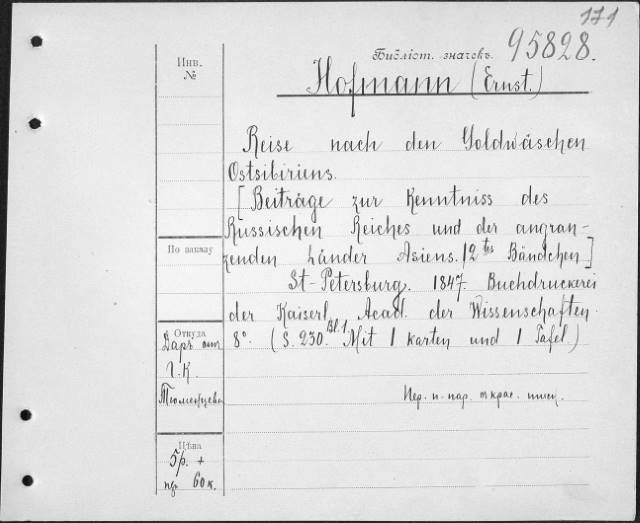 171
Библіот. значекъ. 95828.
Инв.
№
Hofmann (Ernst.)
Reise nach den Goldwäschen
Ostsibiriens.
[Beiträge zur Kenntniss des
Russischen Reiches und der angran-
zenden Länder Asiens. 12tes Bändchen.]
По заказу
St-Petersburg. 1847. Buchdruckerei
der Kaiserl. Acad. der Wissenschaften
Откуда
8°. (S. 230. Bl. 1. Mit 1 karten und 1 Tafel.)
Даръ от
Г.К.
Тюменцева
Пер. п.-пар. т. крас. тисн.
Цѣна
5р. +
пр. 60к.